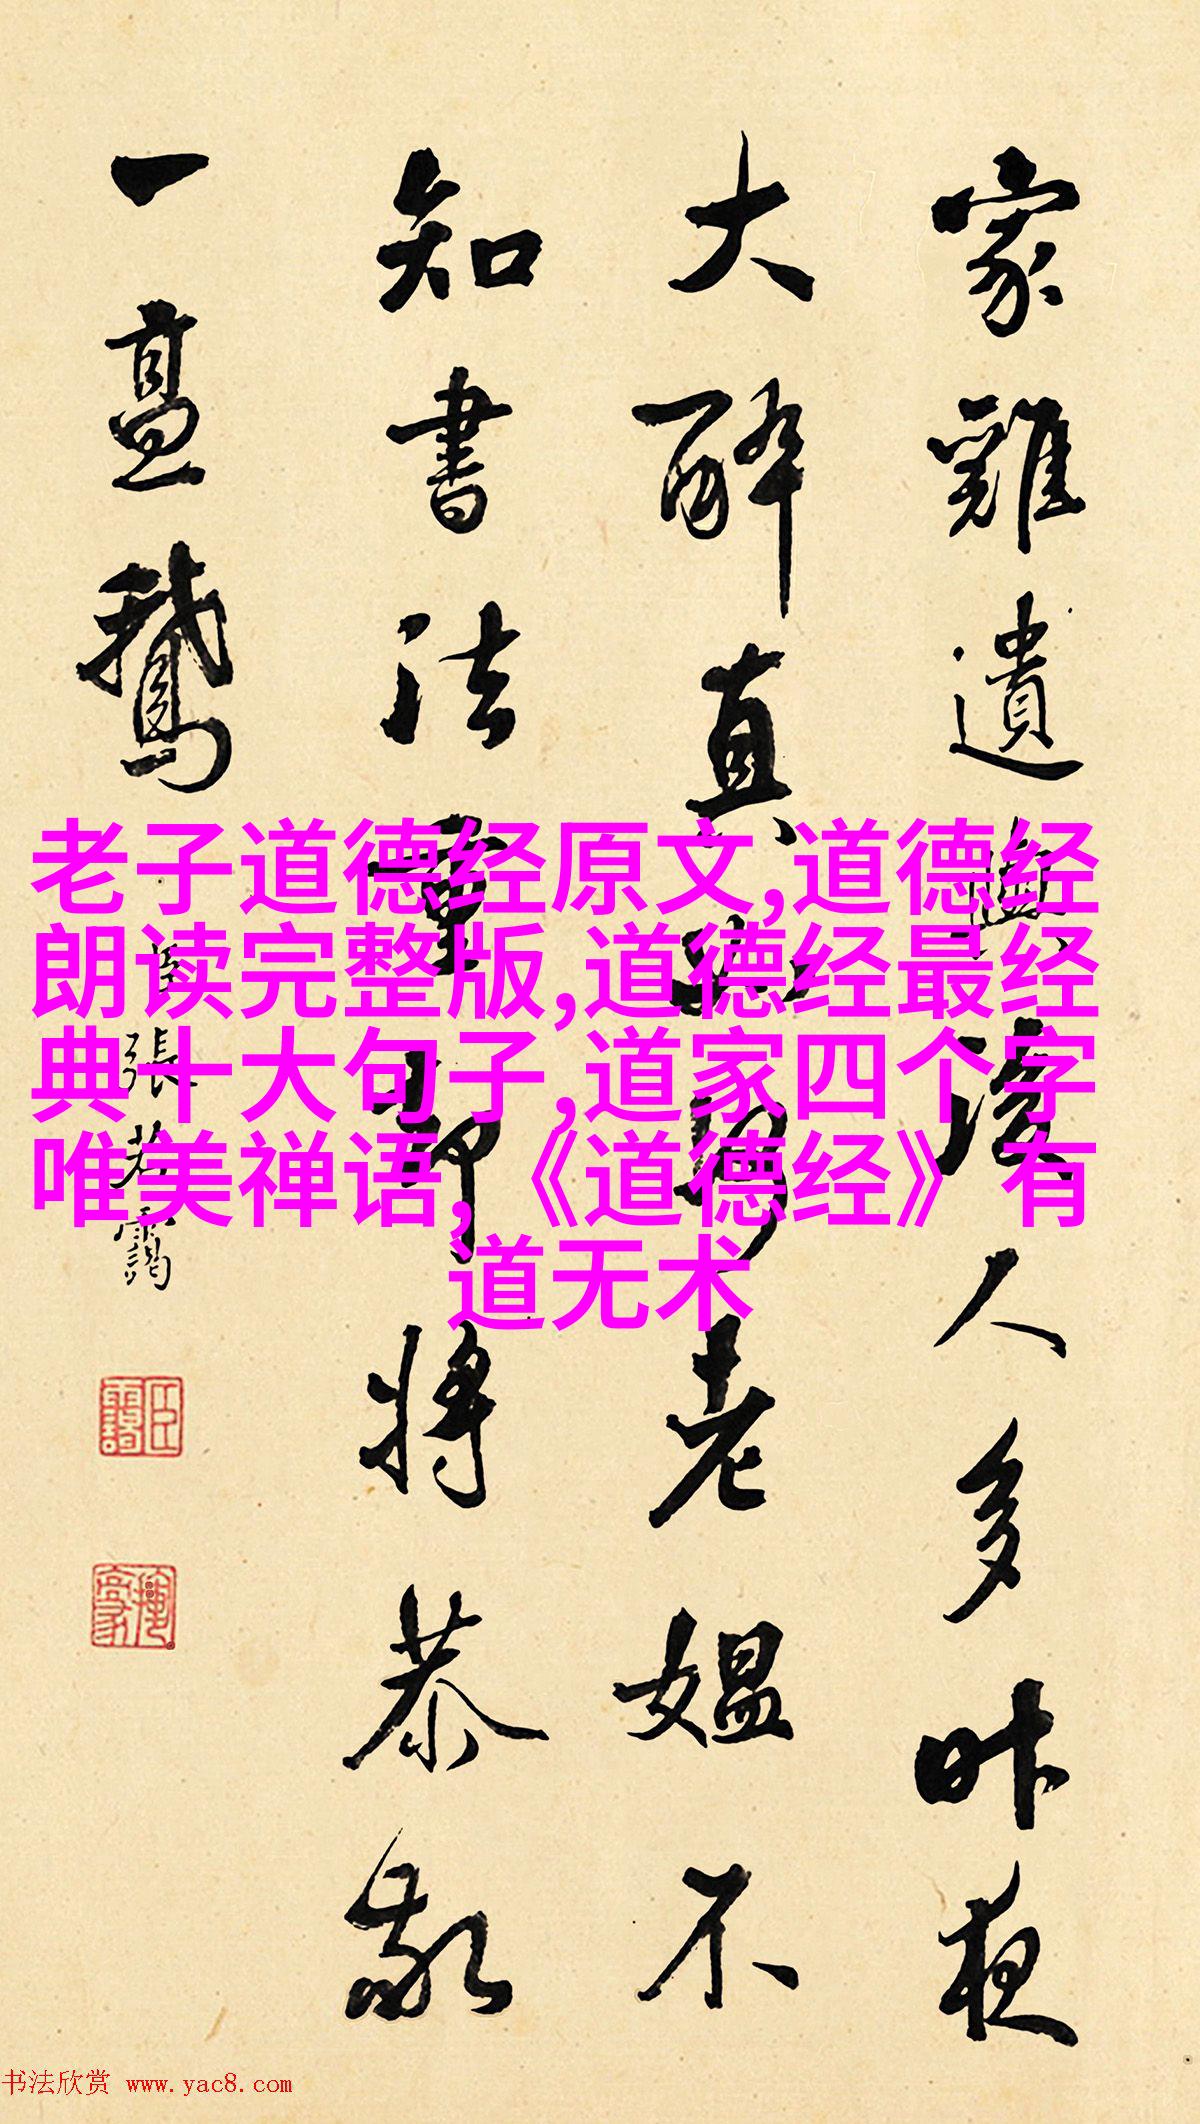 家雞遺人多昨夜
大醉真老媪不
知書法重卻將恭敬
一鵝
臣張若靄
老子道德经原文,道德经
朗读完整版,道德经最经
典十大句子,道家四个字
唯美禅语,《道德经》有
道无术
书法欣赏 www.yac8.com